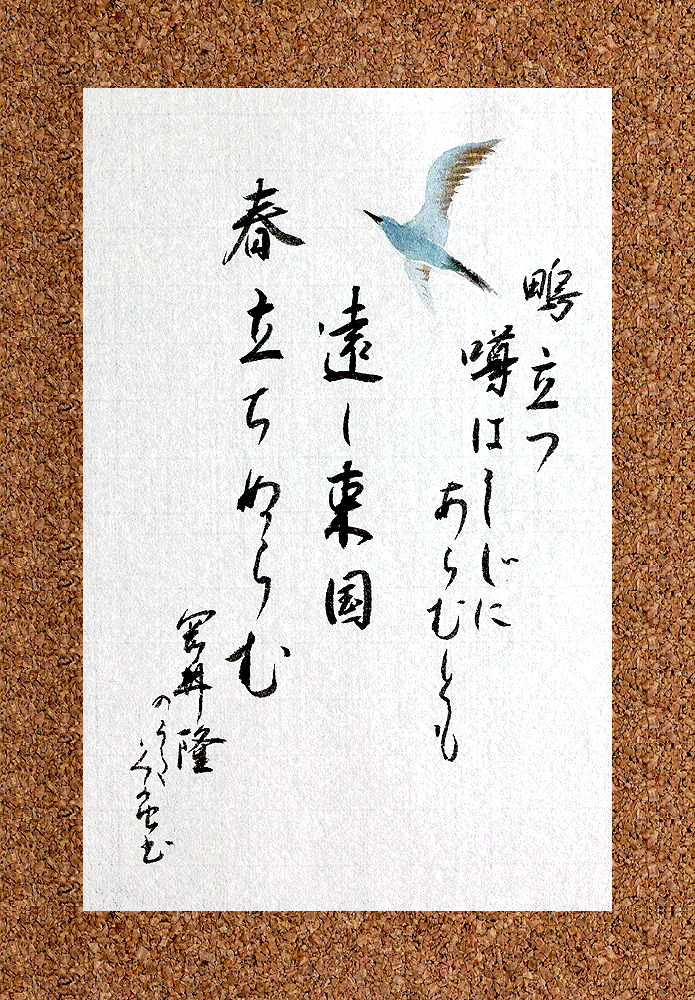 鴫立つ
噂はしじに
あらむとも
遠し東国
春立ちぬらむ
岡井隆
のうた
書